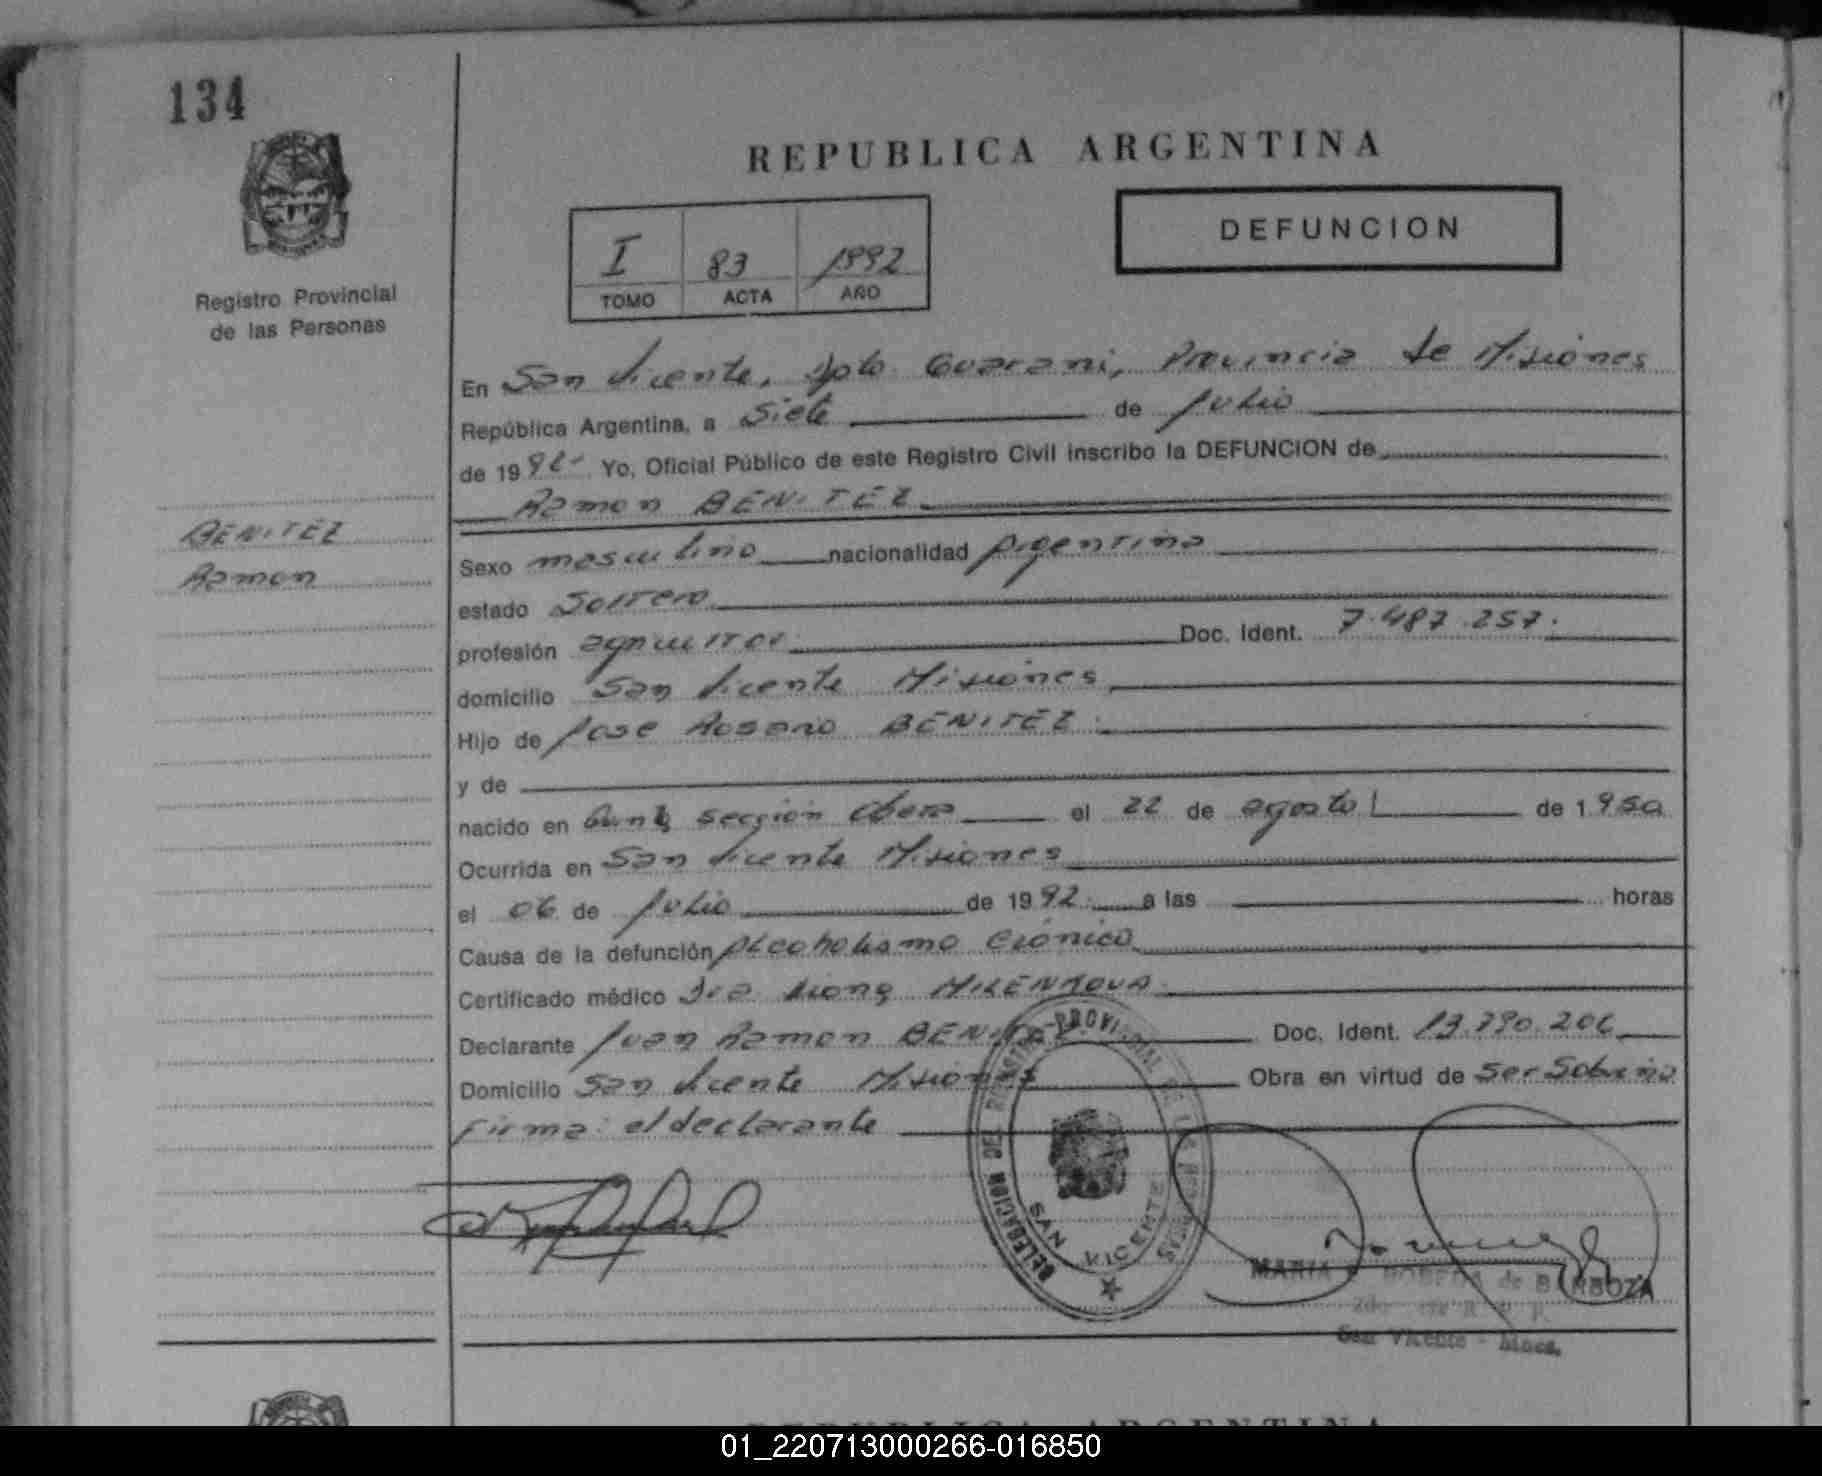 134
REPUBLICA ARGENTINA
DEFUNCION
I 83 1992
TOMO ACTA AÑO
Registro Provincial
de las Personas
En San Vicente, Dpto. Guarani, Provincia de Misiones
República Argentina, a Siete de Julio
de 1992- Yo, Oficial Público de este Registro Civil inscribo la DEFUNCION de
Ramon BENITEZ
BENITEZ
Ramon
Sexo masculino nacionalidad Argentina
estado Soltero
profesión agricultor Doc. Ident. 7.487.257.
domicilio San Vicente Misiones
Hijo de Jose Rosario BENITEZ
y de
nacido en sección Obera el 22 de agosto de 1950
Ocurrida en San Vicente Misiones
el 06 de Julio de 1992 a las horas
Causa de la defunción Alcoholismo Crónico
Certificado médico Dra MILENKOVA
Declarante Juan Ramon BENITEZ Doc. Ident. 13.790.206
Domicilio San Vicente Misiones Obra en virtud de Ser Sobrino
Firma: el declarante
DELEGACION DEL REGISTRO PROVINCIAL DE LAS PERSONAS
SAN VICENTE
MARIA de BARBOZA
San Vicente - Mnes.
REPUBLICA ARGENTINA
01_220713000266-016850